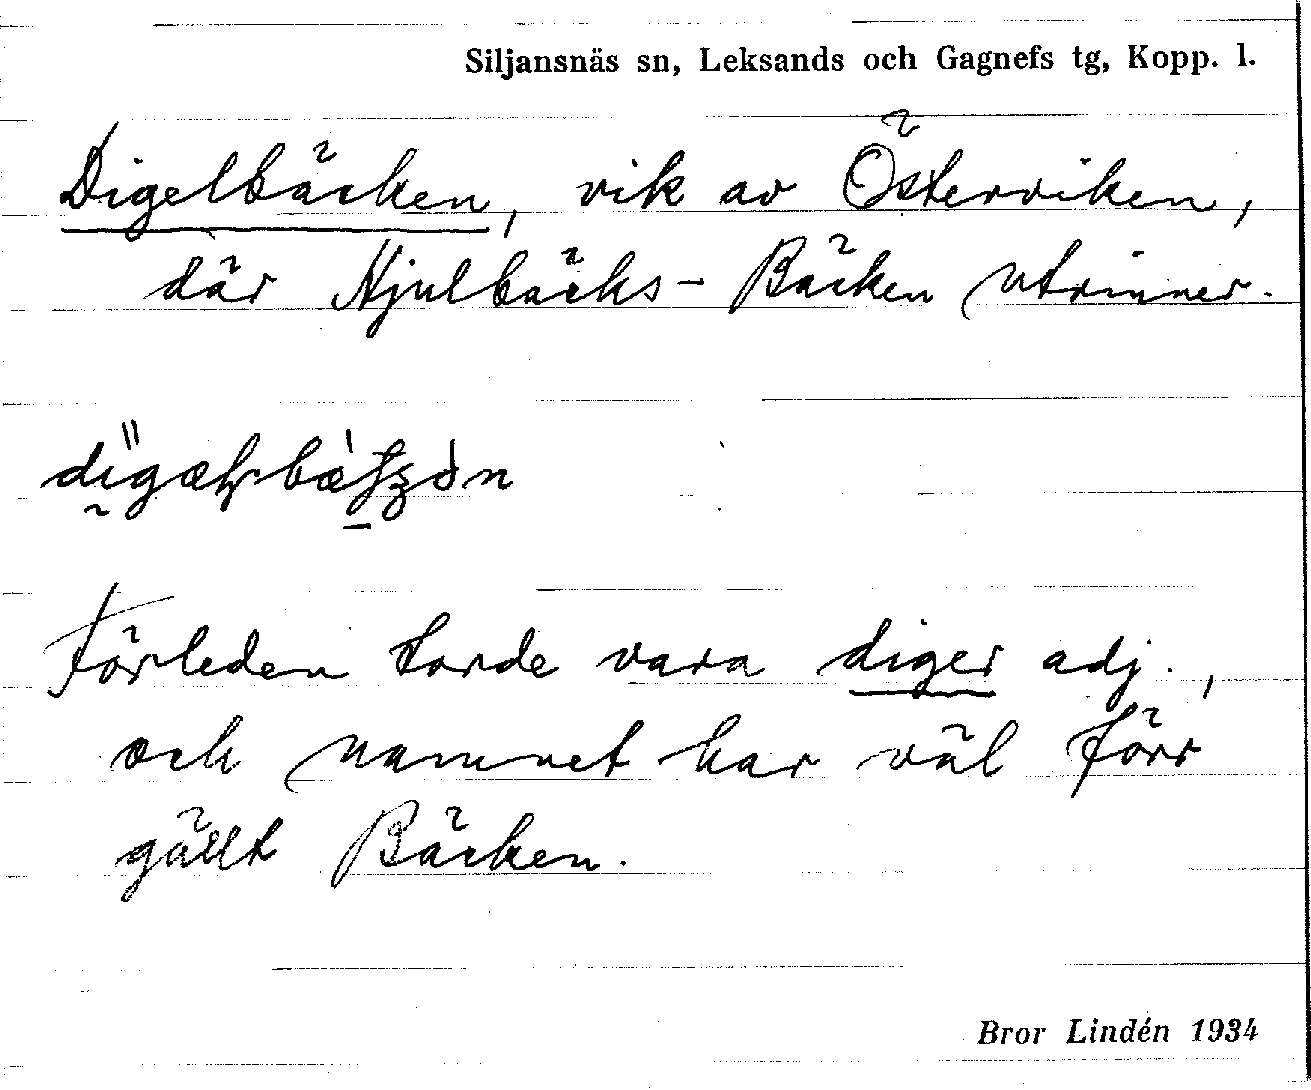 Siljansnäs sn, Leksands och Gagnefs tg, Kopp. l.
Digelbäcken, vik av Österviken,
där Hjulbäcks-Bäcken utrinner.
Förleden torde vara diger adj.,
och namnet har väl förr
gällt Bäcken.
Bror Lindén 1934